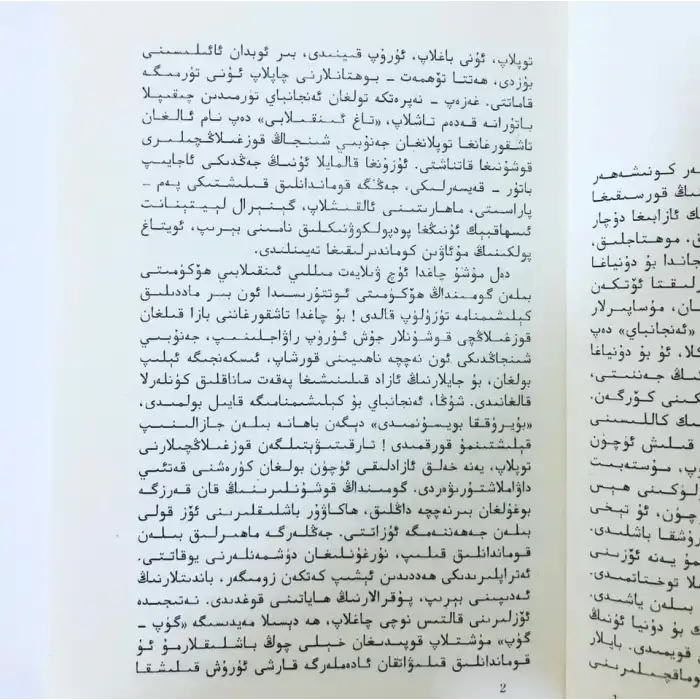 توپلاپ، ئۇنى باغلاپ، ئۇرۇپ قىينىدى، بىر ئوبدان ئائىلىسىنى
بۇزدى، ھەتتا تۆھمەت - بوھتانلارنى چاپلاپ ئۇنى تۈرمىگە
قاماتتى. غەزەپ - نەپرەتكە تولغان ئەنجانباي تۈرمىدىن چىقىپلا
باتۇرانە قەدەم تاشلاپ، «تاغ ئىنقىلابى» دەپ نام ئالغان
تاشقورغانغا توپلانغان جەنۇبىي شىنجاڭ قوزغىلاڭچىلىرى
قوشۇنىغا قاتناشتى. ئۇزۇنغا قالمايلا ئۇنىڭ جەڭدىكى ئاجايىپ
باتۇر - قەيسەرلىكى، جەڭگە قوماندانلىق قىلىشتىكى پەم -
پاراسىتى، ماھارىتىنى ئالقىشلاپ، گېنېرال لېيتېنانت
ئىسھاقبېك ئۇنىڭغا پودپولكوۋنىكلىق نامىنى بېرىپ، ئويتاغ
پولكىنىڭ مۇئاۋىن كوماندىرلىقىغا تەيىنلىدى.
دەل مۇشۇ چاغدا ئۈچ ۋىلايەت مىللىي ئىنقىلابىي ھۆكۈمىتى
بىلەن گومىنداڭ ھۆكۈمىتى ئوتتۇرىسىدا ئون بىر ماددىلىق
كېلىشىمنامە تۈزۈلۈپ قالدى! بۇ چاغدا تاشقورغاننى بازا قىلغان
قوزغىلاڭچى قوشۇنلار جۇش ئۇرۇپ راۋاجلىنىپ، جەنۇبىي
شىنجاڭدىكى ئون نەچچە ناھىيىنى قورشاپ، ئىسكەنجىگە ئېلىپ
بولغان، بۇ جايلارنىڭ ئازاد قىلىنىشىغا پەقەت ساناقلىق كۈنلەرلا
قالغانىدى. شۇڭا، ئەنجانباي بۇ كېلىشىمنامىگە قايىل بولمىدى،
«بۇيرۇققا بويسۇنمىدى» دېگەن باھانە بىلەن جازالىنىپ
قېلىشتىنمۇ قورقمىدى! تارقىتىۋېتىلگەن قوزغىلاڭچىلارنى
توپلاپ، يەنە خەلق ئازادلىقى ئۈچۈن بولغان كۈرەشنى قەتئىي
داۋاملاشتۇرىۋەردى. گومىنداڭ قوشۇنلىرىنىڭ قان قەرزگە
بوغۇلغان بىرنەچچە داڭلىق، ھاكاۋۇر باشلىقلىرىنى ئۆز قولى
بىلەن جەھەننەمگە ئۇزاتتى. جەڭلەرگە ماھىرلىق بىلەن
قوماندانلىق قىلىپ، نۇرغۇنلىغان دۈشمەنلەرنى يوقاتتى.
ئەتراپلىرىدىكى ھەددىدىن ئېشىپ كەتكەن زومىگەر، باندىتلارنىڭ
ئەدىپىنى بېرىپ، پۇقرالارنىڭ ھاياتىنى قوغدىدى. نەتىجىدە
ئۆزلىرىنى قالتىس نوچى چاغلاپ، ھە دېسىلا مەيدىسىگە «گۈپ -
گۈپ» مۇشتلاپ قوپىدىغان خېلى چوڭ باشلىقلارمۇ ئۇ
قوماندانلىق قىلىۋاتقان ئادەملەرگە قارشى ئۇرۇش قىلىشقا
2
كونىشەھەر
نىڭ قورسىقىغا
ئازابىغا دۇچار
موھتاجلىق،
بۇ دۇنياغا
ئۆتكەن
مۇساپىرلار
«ئەنجانباي» دەپ
ئۇ بۇ دۇنياغا
جەننىتى،
كۆرگەن.
كاللىسىنى
قىلىش ئۈچۈن
مۇستەبىت
ھېس
ئۇ تېخى
باشلىدى.
يەنە ئۆزىنى
توختاتمىدى.
بىلەن ياشىدى.
بۇ دۇنيا ئۇنىڭ
قويمىدى. بايلار